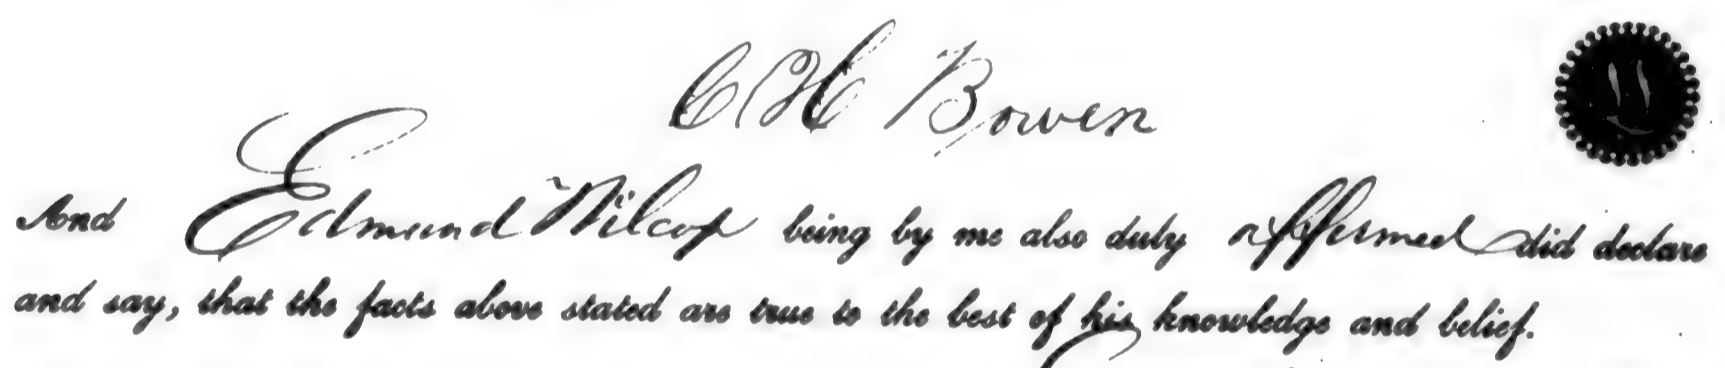 C H Bowen
And Edmund Wilcox being by me also duly affermed did declare
and say, that the facts above stated are true to the best of his knowledge and belief.